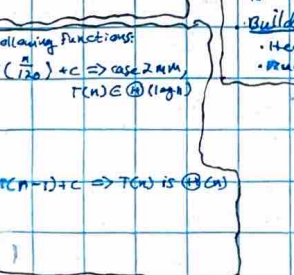 ollowing functions:
(n/120) + c => case 2 MM,
T(n) ∈ Θ(log n)
T(n-1)+c => T(n) is Θ(n)
Build
• He